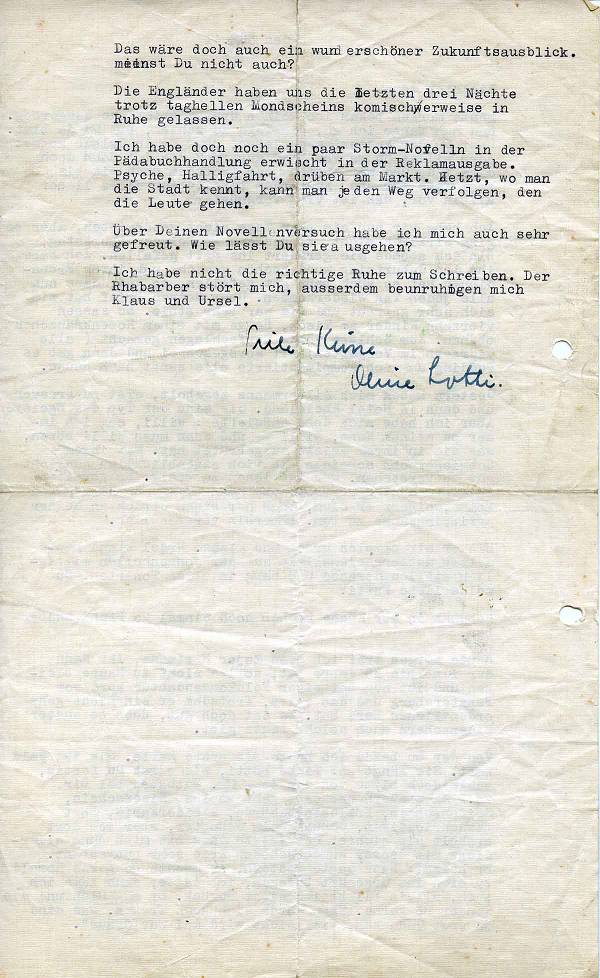 Das wäre doch auch ein wunderschöner Zukunftsausblick.
meinst Du nicht auch?
Die Engländer haben uns die letzten drei Nächte
trotz taghellen Mondscheins komischerweise in
Ruhe gelassen.
Ich habe doch noch ein paar Storm-Novelln in der
Pädabuchhandlung erwischt in der Reklamausgabe.
Psyche, Halligfahrt, drüben am Markt. Jetzt, wo man
die Stadt kennt, kann man jeden Weg verfolgen, den
die Leute gehen.
Über Deinen Novellenversuch habe ich mich auch sehr
gefreut. Wie lässt Du sie ausgehen?
Ich habe nicht die richtige Ruhe zum Schreiben. Der
Rhabarber stört mich, ausserdem beunruhigen mich
Klaus und Ursel.
Viele Küsse
Deine Lotti.